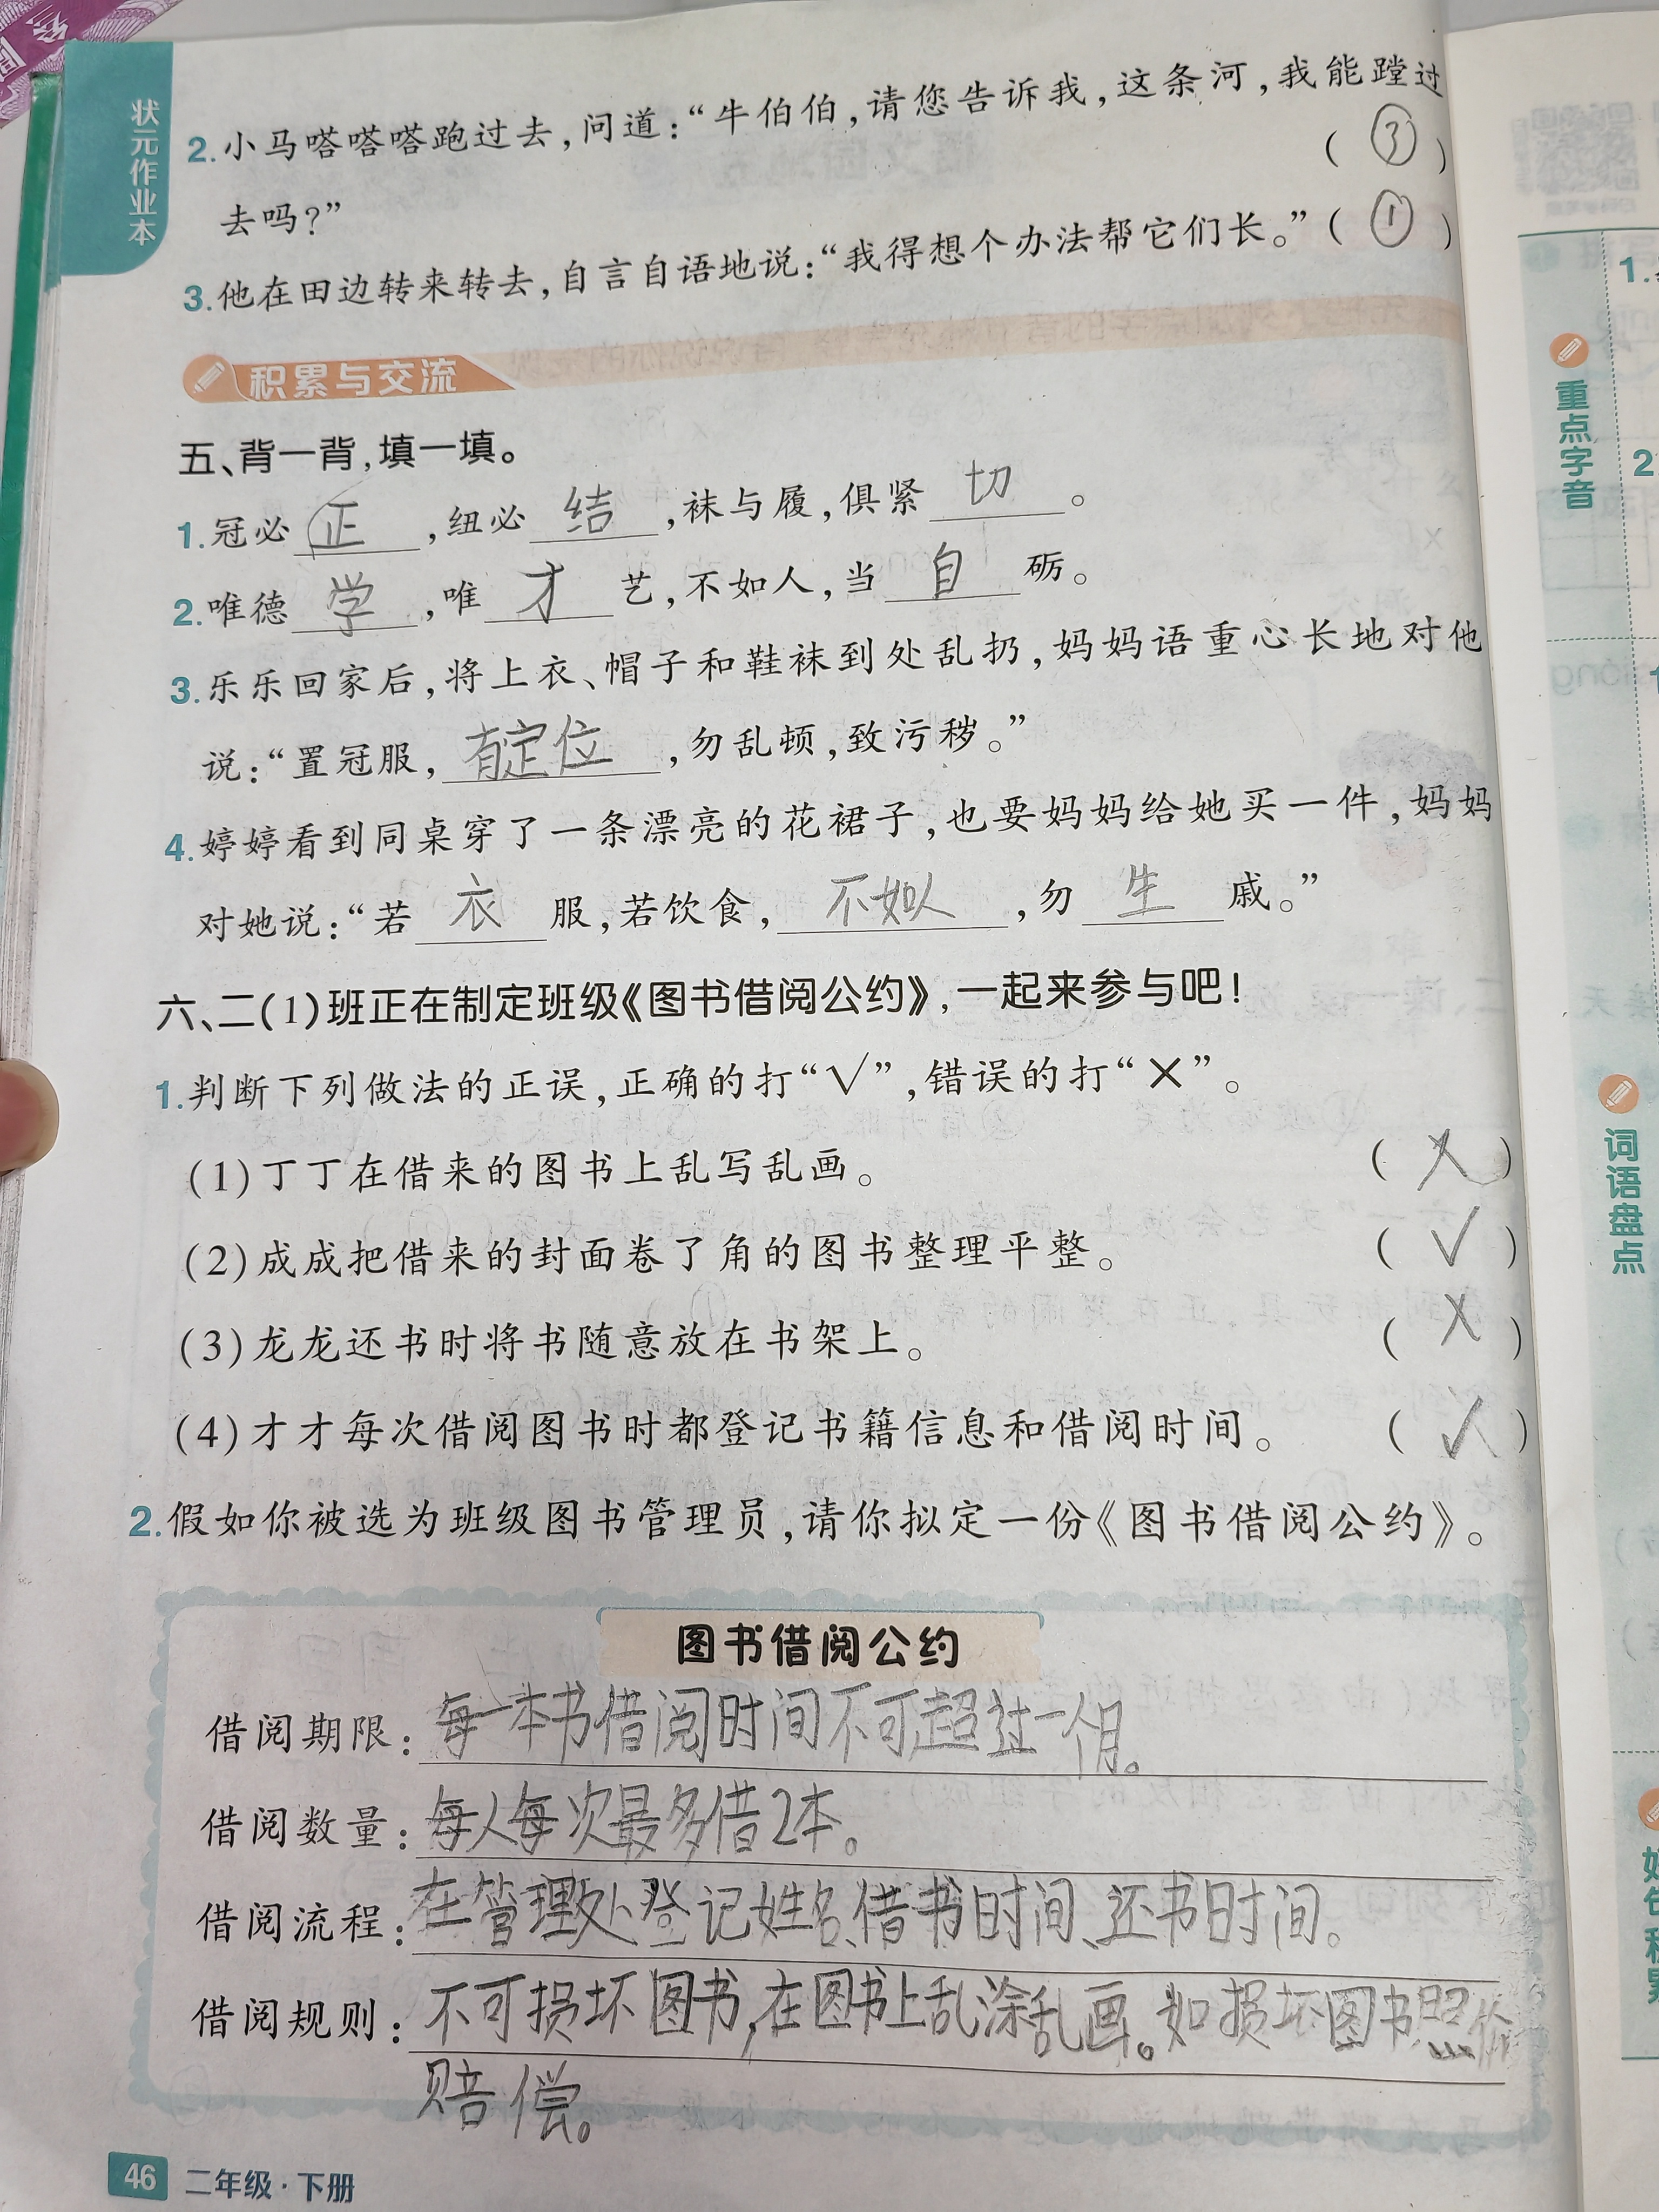 状元作业本
2.小马嗒嗒嗒跑过去,问道:“牛伯伯,请您告诉我,这条河,我能蹚过
去吗?” (③)
3.他在田边转来转去,自言自语地说:“我得想个办法帮它们长。”(①)
积累与交流
五、背一背,填一填。
1.冠必正,纽必结,袜与履,俱紧切。
2.唯德学,唯才艺,不如人,当自砺。
3.乐乐回家后,将上衣、帽子和鞋袜到处乱扔,妈妈语重心长地对他
说:“置冠服,有定位,勿乱顿,致污秽。”
4.婷婷看到同桌穿了一条漂亮的花裙子,也要妈妈给她买一件,妈妈
对她说:“若衣服,若饮食,不如人,勿生戚。”
六、二(1)班正在制定班级《图书借阅公约》,一起来参与吧!
1.判断下列做法的正误,正确的打“√”,错误的打“×”。
(1)丁丁在借来的图书上乱写乱画。 (×)
(2)成成把借来的封面卷了角的图书整理平整。 (√)
(3)龙龙还书时将书随意放在书架上。 (×)
(4)才才每次借阅图书时都登记书籍信息和借阅时间。 (√)
2.假如你被选为班级图书管理员,请你拟定一份《图书借阅公约》。
图书借阅公约
借阅期限:每一本书借阅时间不可超过一个月。
借阅数量:每人每次最多借2本。
借阅流程:在管理处登记姓名、借书时间、还书时间。
借阅规则:不可损坏图书,在图书上乱涂乱画。如损坏图书照价
赔偿。
46 二年级·下册
1.
重点字音
2
词语盘点